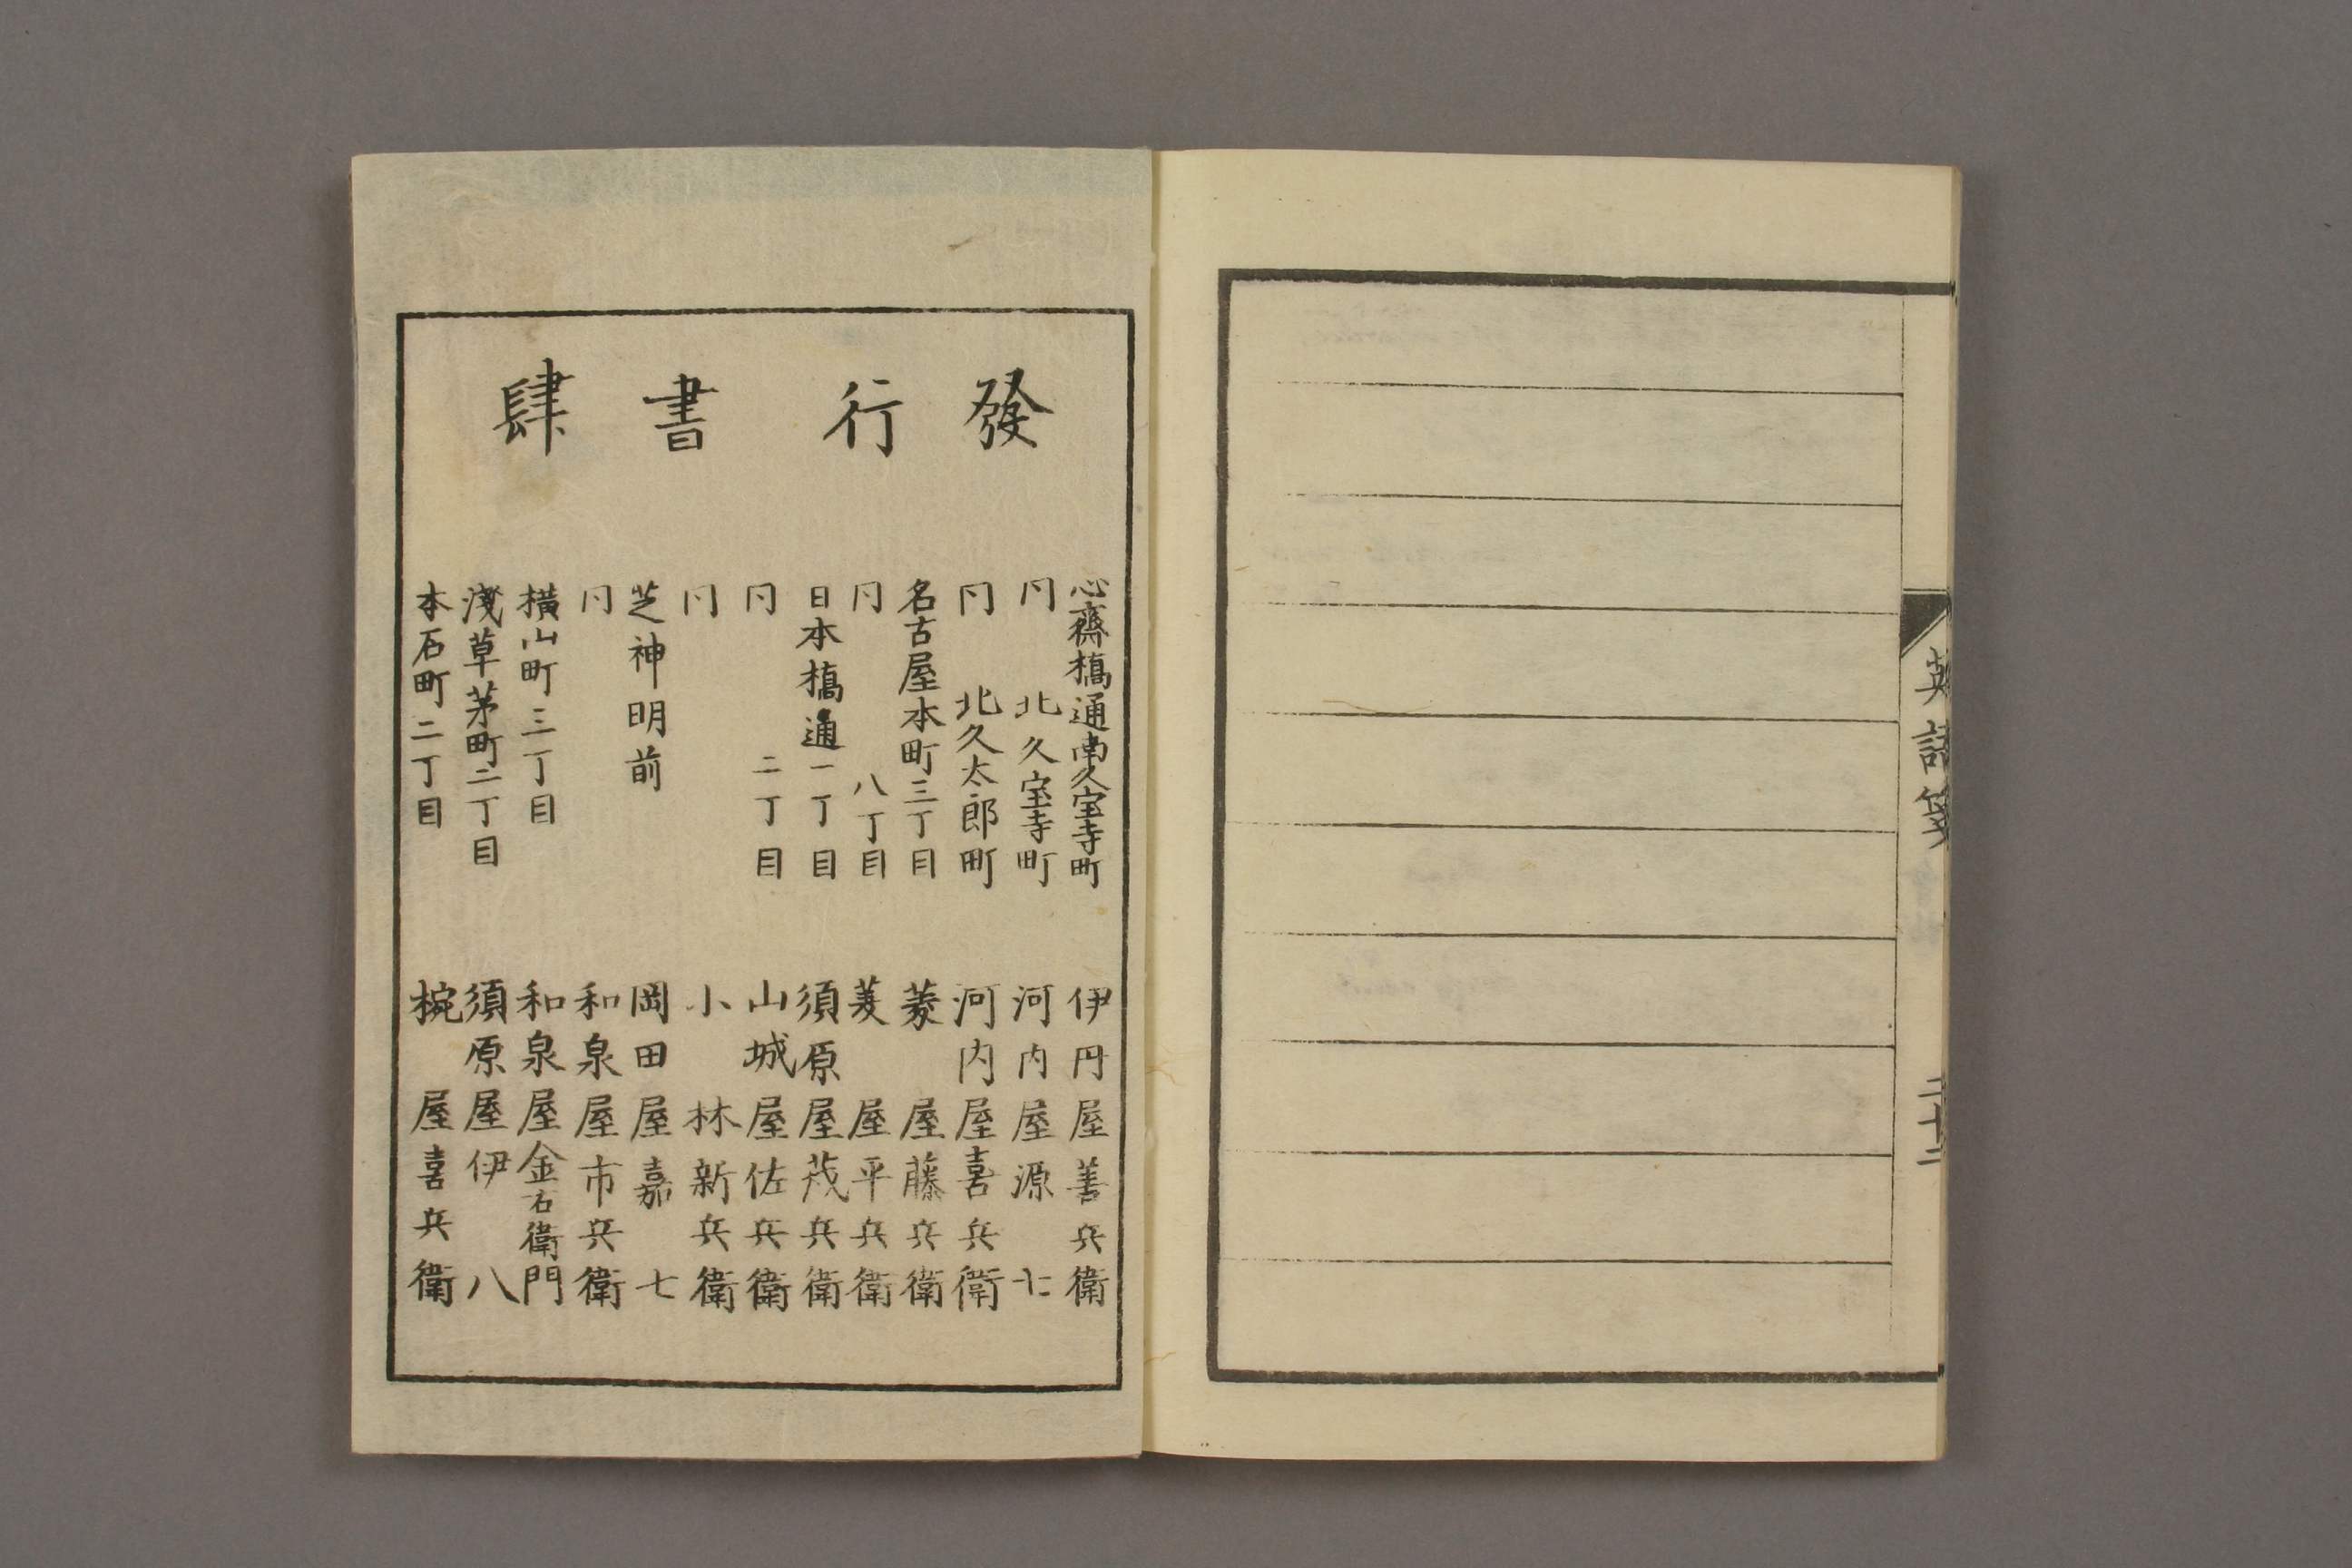 英語箋
二十二
發行書肆
心齋橋通南久宝寺町 伊丹屋善兵衛
同 北久宝寺町 河内屋源七
同 北久太郎町 河内屋喜兵衛
名古屋本町三丁目 菱屋藤兵衛
同 八丁目 菱屋平兵衛
日本橋通一丁目 須原屋茂兵衛
同 二丁目 山城屋佐兵衛
同 小林新兵衛
芝神明前 岡田屋嘉七
同 和泉屋市兵衛
横山町三丁目 和泉屋金右衛門
淺草茅町二丁目 須原屋伊八
本石町二丁目 椀屋喜兵衛